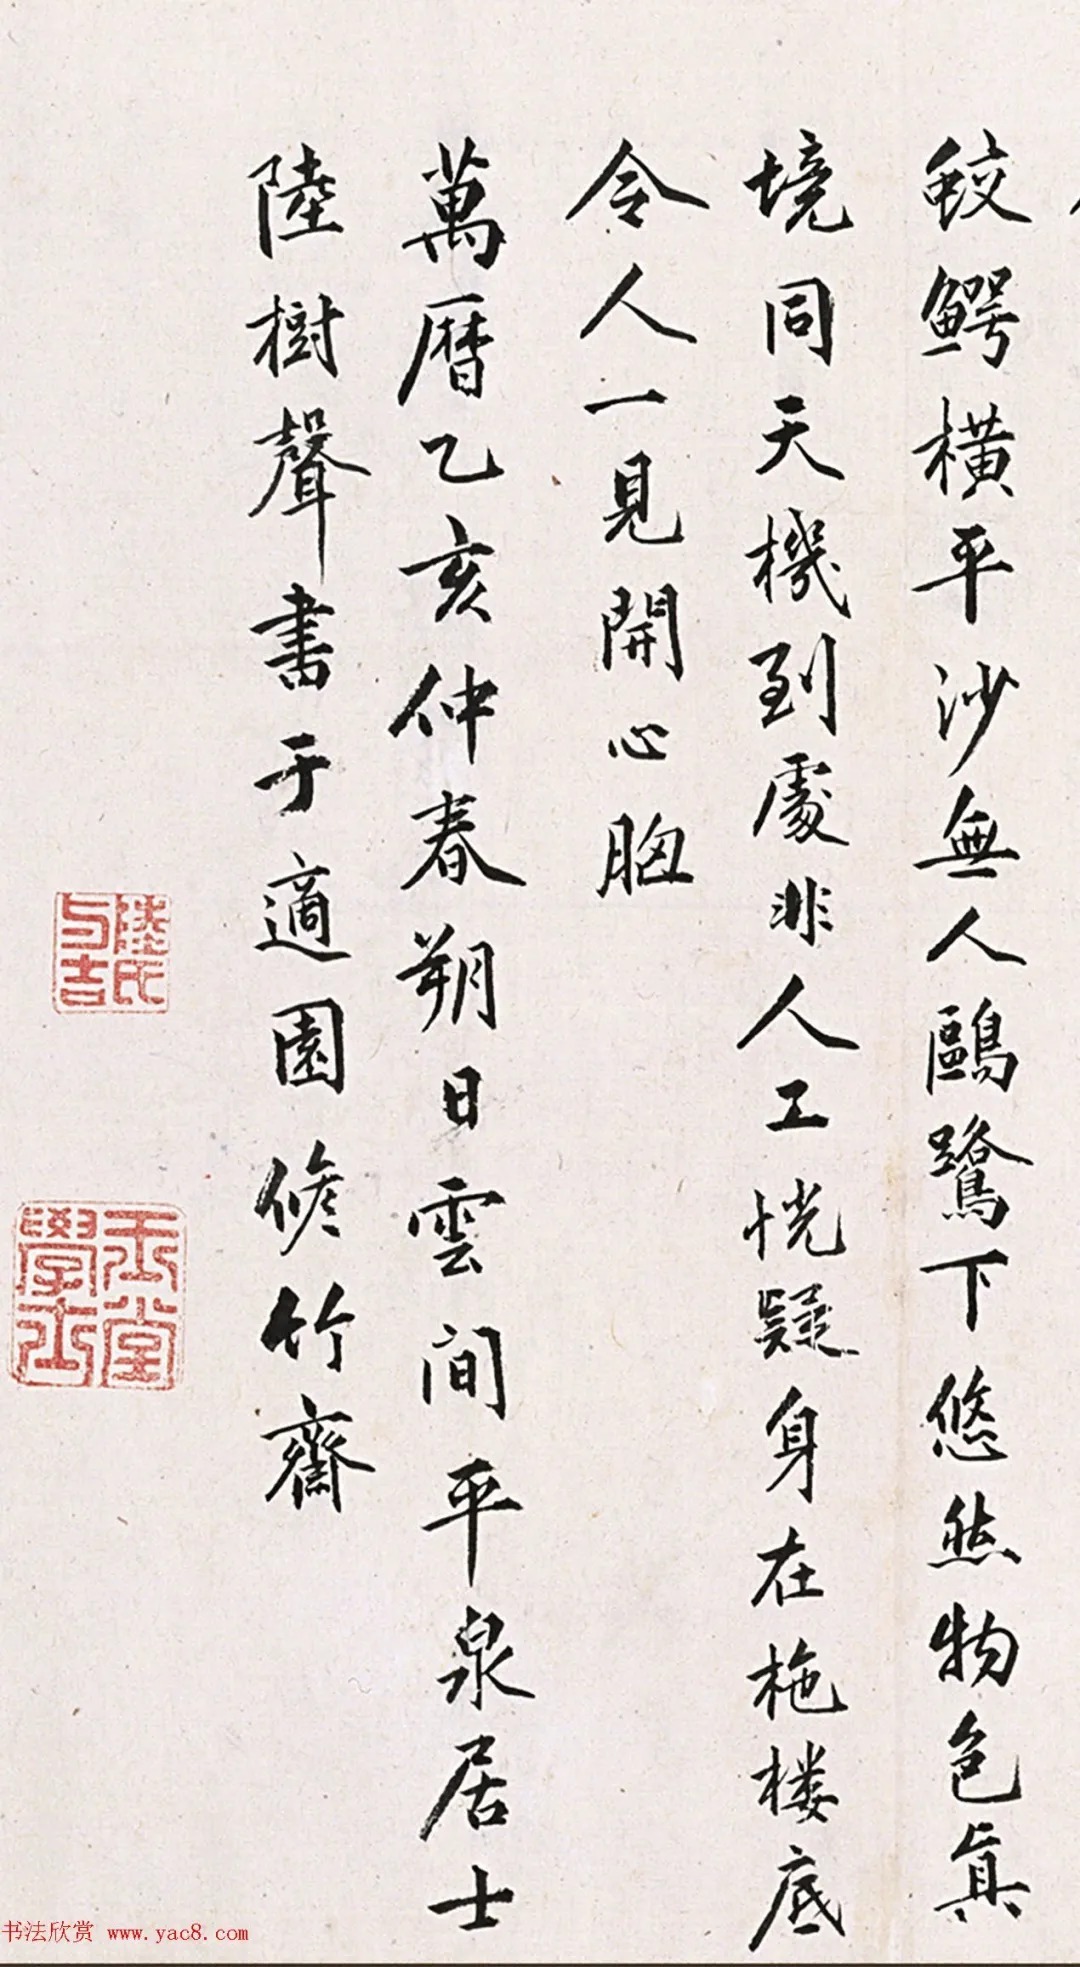 鮫鰐橫平沙無人鷗鷺下悠然物色真
境同天機到處非人工恍疑身在柂楼底
令人一見開心胸
萬曆乙亥仲春朔日雲間平泉居士
陸樹聲書于適園修竹齋
陸氏与吉
玉堂學士
书法欣赏 www.yac8.com